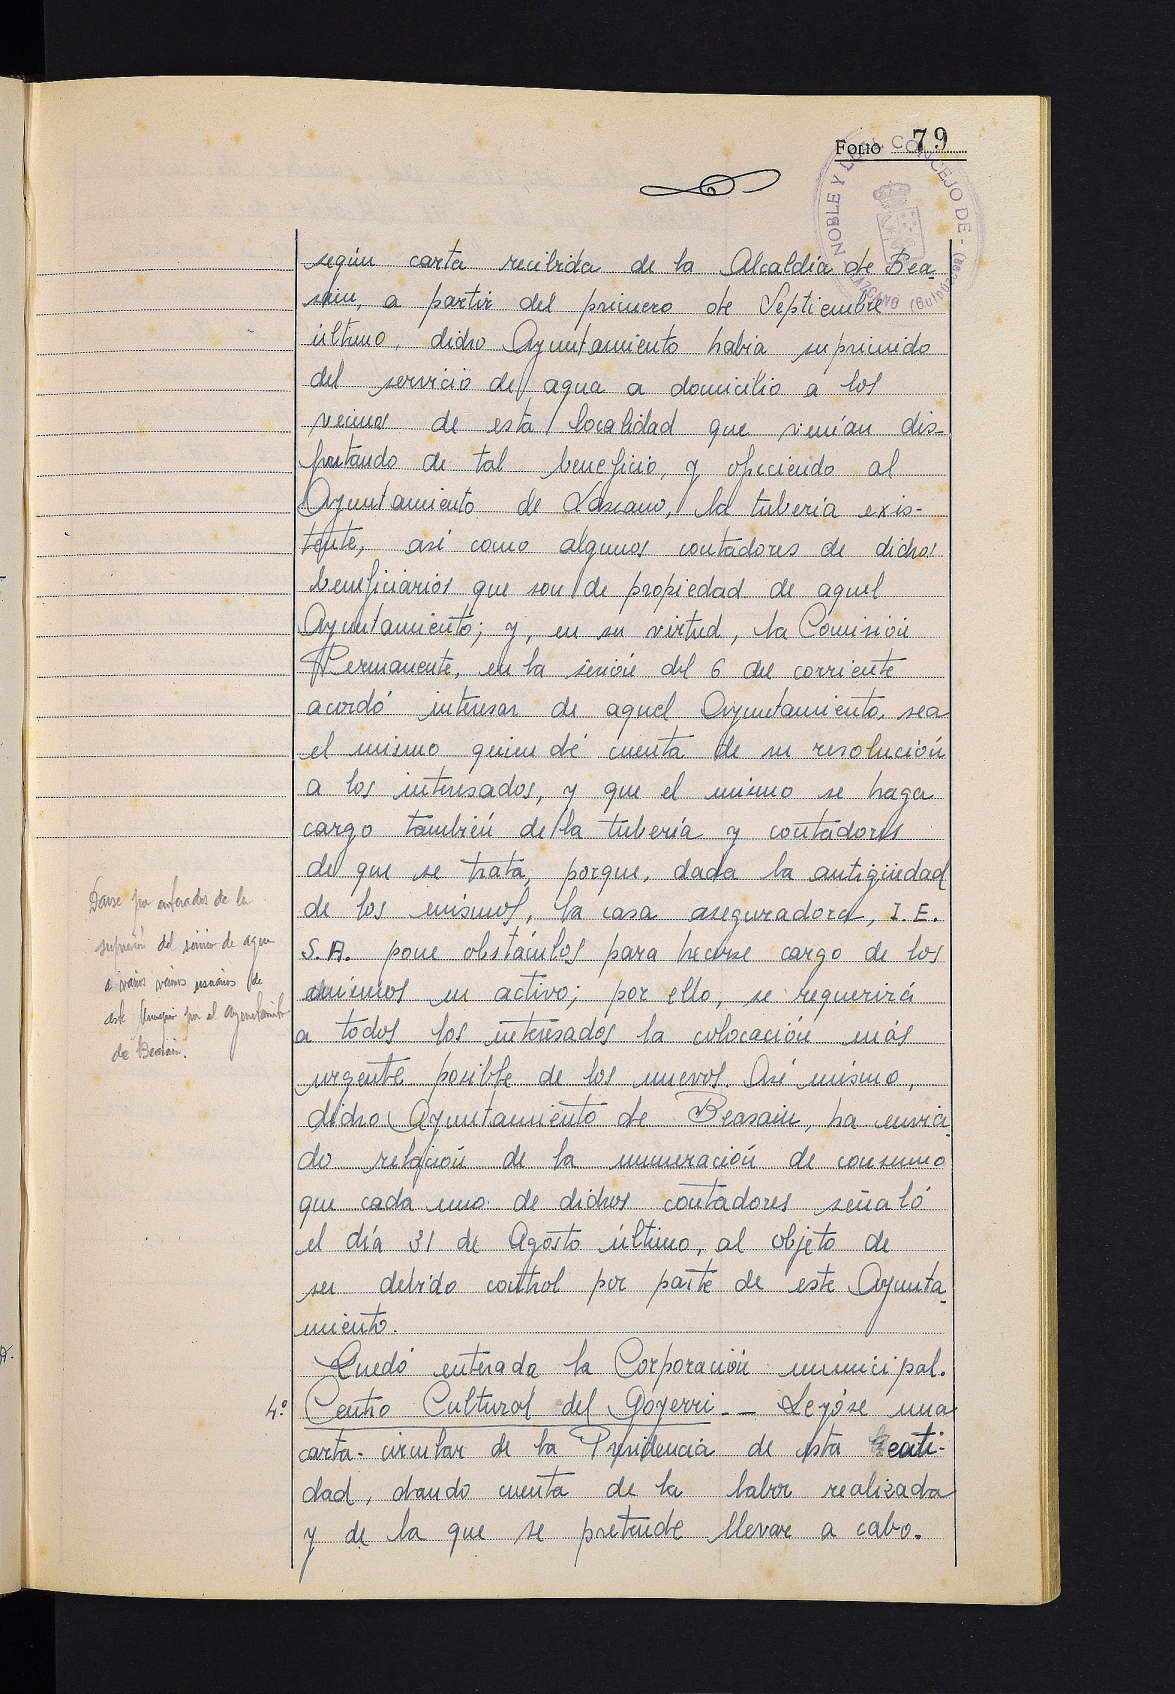 Folio 79
NOBLE Y LEAL CONCEJO DE - LAZCANO (Guipúzcoa)
según carta recibida de la Alcaldía de Bea-
sain, a partir del primero de Septiembre
último, dicho Ayuntamiento había suprimido
del servicio de agua a domicilio a los
vecinos de esta localidad que venían dis-
frutando de tal beneficio, y ofreciendo al
Ayuntamiento de Lazcano, la tubería exis-
tente, así como algunos contadores de dichos
beneficiarios que son de propiedad de aquel
Ayuntamiento; y, en su virtud, la Comisión
Permanente, en la sesión del 6 del corriente
acordó interesar de aquel Ayuntamiento, sea
el mismo quien dé cuenta de su resolución
a los interesados, y que el mismo se haga
cargo también de la tubería y contadores
de que se trata, porque, dada la antigüedad
de los mismos, la casa aseguradora, I.E.
S.A. pone obstáculos para hecerse cargo de los
mismos en activo; por ello, se requerirá
a todos los interesados la colocación más
urgente posible de los nuevos. Así mismo,
dicho Ayuntamiento de Beasain, ha envia-
do relación de la numeración de consumo
que cada uno de dichos contadores señaló
el día 31 de Agosto último, al objeto de
su debido control por parte de este Ayunta-
miento.
Quedó enterada la Corporación municipal.
4º Centro Cultural del Goyerri -- Leyóse una
carta-circular de la Presidencia de esta enti-
dad, dando cuenta de la labor realizada
y de la que se pretende llevar a cabo.
Darse por enterados de la
supresión del servicio de agua
a varios vecinos usuarios de
este Municipio por el Ayuntamiento
de Beasain.